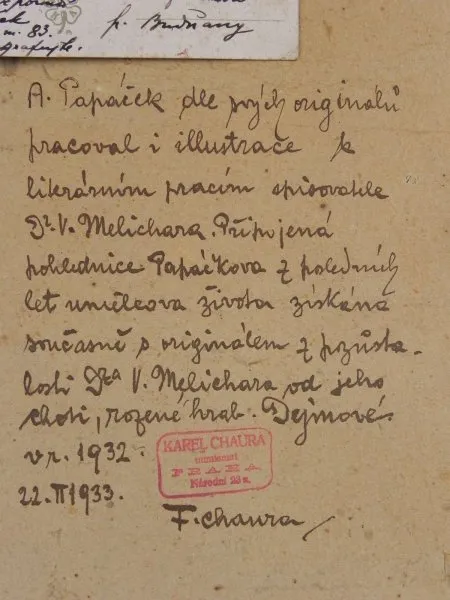 m. 83.
p. Budňany
A. Papáček dle svých originálů
pracoval i illustrace k
literárním pracím spisovatele
Dr. V. Melichara. Připojená
pohlednice Papáčkova z posledních
let umělcova života získána
současně s originálem z pozůsta-
losti Dra V. Melichara od jeho
choti, rozené hrab. Dejmové
v r. 1932.
KAREL CHAURA
PRAHA
Národní 23 n.
22. II 1933.
F. Chaura